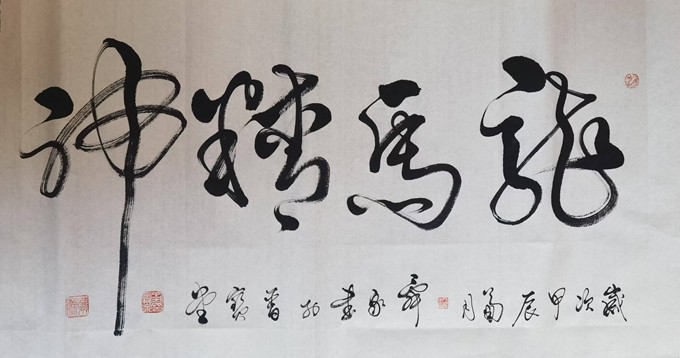 龍馬精神
歲次甲辰菊月 舜永書於晉寶堂